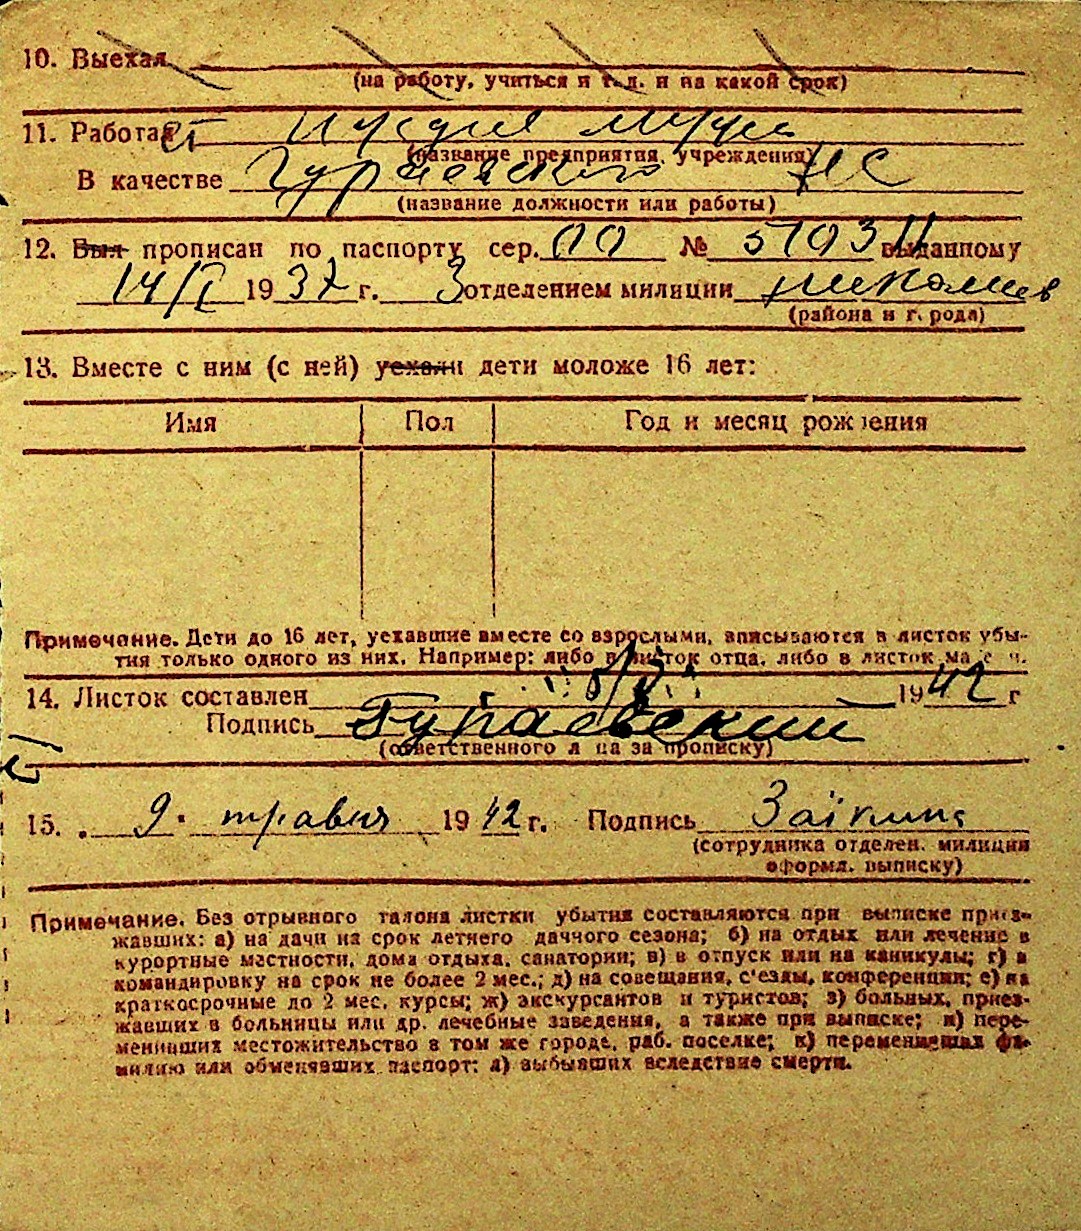 10. Выехал
(на работу, учиться и т. д. и на какой срок)
11. Работает
(название предприятия, учреждения)
В качестве
(название должности или работы)
12. Был прописан по паспорту сер. № выданному
14/I 1937 г. 3 отделением милиции Николаев
(района и города)
13. Вместе с ним (с ней) уехали дети моложе 16 лет:
Имя Пол Год и месяц рождения
Примечание. Дети до 16 лет, уехавшие вместе со взрослыми, вписываются в листок убы-
тия только одного из них. Например: либо в листок отца, либо в листок матери.
14. Листок составлен 1942 г
Подпись Гураевский
(ответственного лица за прописку)
15. 9. травня 1942 г. Подпись Заїкина
(сотрудника отделен. милиции
оформл. выписку)
Примечание. Без отрывного талона листки убытия составляются при выписке приез-
жавших: а) на дачи на срок летнего дачного сезона; б) на отдых или лечение в
курортные местности, дома отдыха, санатории; в) в отпуск или на каникулы; г) в
командировку на срок не более 2 мес.; д) на совещания, с'езды, конференции; е) на
краткосрочные до 2 мес. курсы; ж) экскурсантов и туристов; з) больных, приез-
жавших в больницы или др. лечебные заведения, а также при выписке; и) пере-
менивших местожительство в том же городе, раб. поселке; к) переменивших фа-
милию или обменявших паспорт; л) выбывших вследствие смерти.